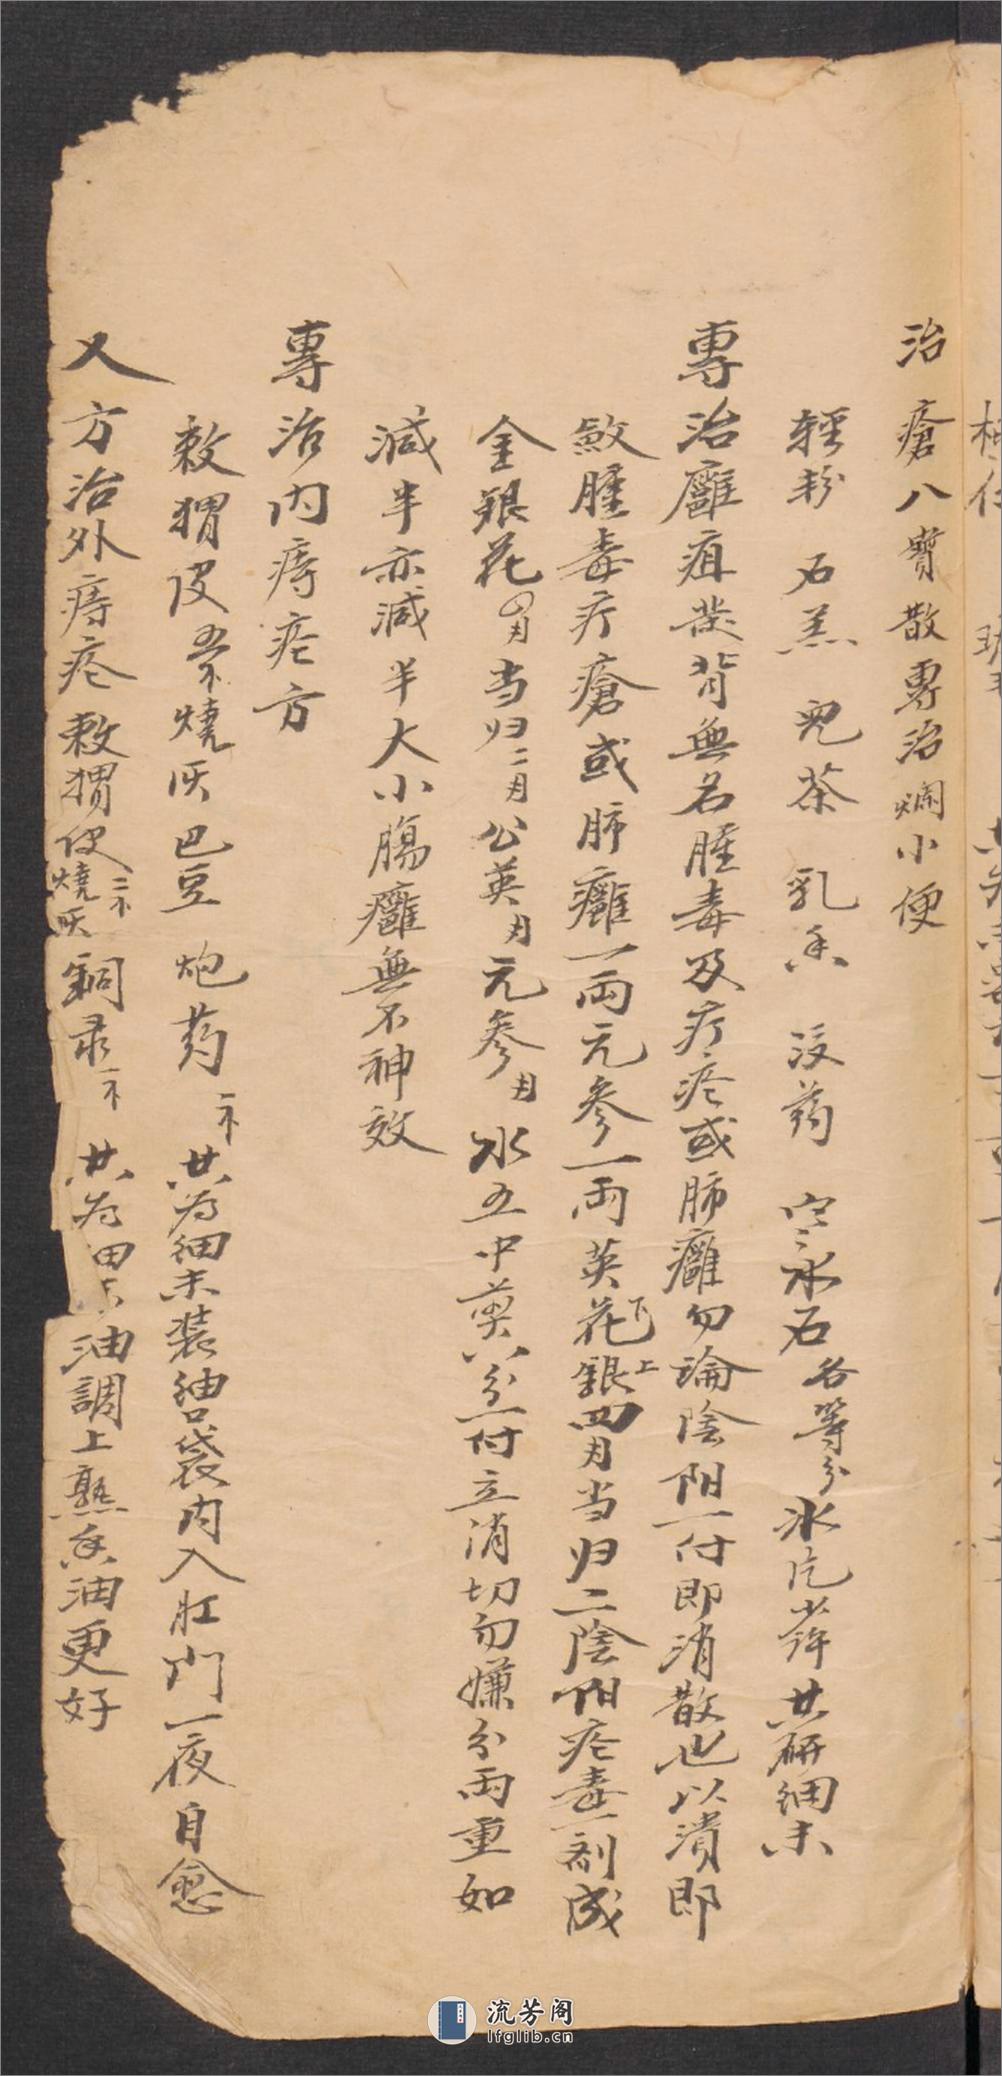 治瘡八寶散專治爛小便
輕粉 石羔 兒茶 乳香 沒药 寒水石各等分冰片少許共研細末
專治癰疽發背無名腫毒及疔疮或肺癰勿論陰阳一付即消散也以潰即
斂腫毒疔瘡或肺癰一両元参一両英花下銀上四月当归二陰阳疮毒一剤成
金銀花四月当归二月公英月元参月水五中煎八分一付立消切勿嫌分両重如
減半亦減半大小腸癰無不神效
專治內痔疮方
敕猬皮燒灰巴豆 炮药 共为細末装油口袋內入肛門一夜自愈
又方治外痔疮敕猬皮燒灰銅录 共为細末油調上熟香油更好
流芳阁
lfglib.cn